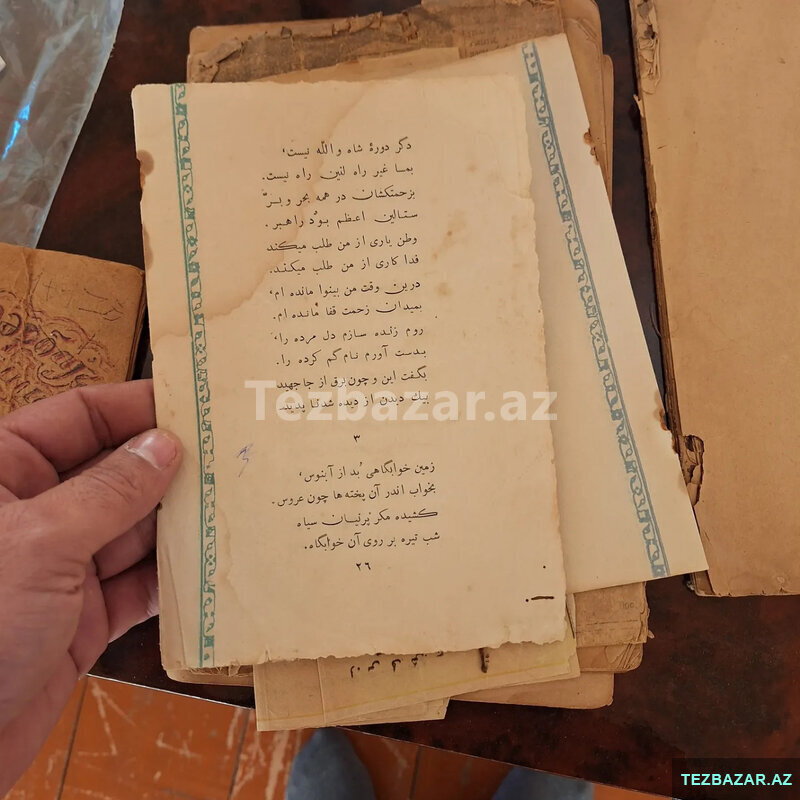 دگر دورهٔ شاه والله نیست،
بما غیر راه لنین راه نیست.
بزحمتکشان در همه بحر و بـرّ
ستالین اعظم بـوُد راهـبر.
وطن یاری از من طلب میکند
فدا کاری از من طلب میکنـد.
درین وقت من بینوا مانده ام،
بمیدان زحمت قفا مُانده ام.
روم زنـده سازم دل مرده را،
بـدست آورم نام گم کرده را.
بگفت این و چون برق از جا جهید
بیك دیدن از دیده شد نا پدید.
۳
زمین خوابگاهی بُد از آبنوس،
بخواب اندر آن پخته ها چون عروس.
کشیده مکر پرنیـان سیاه
شب تیره بر روی آن خوابگاه.
۲۶
Tezbazar.az
TEZBAZAR.AZ